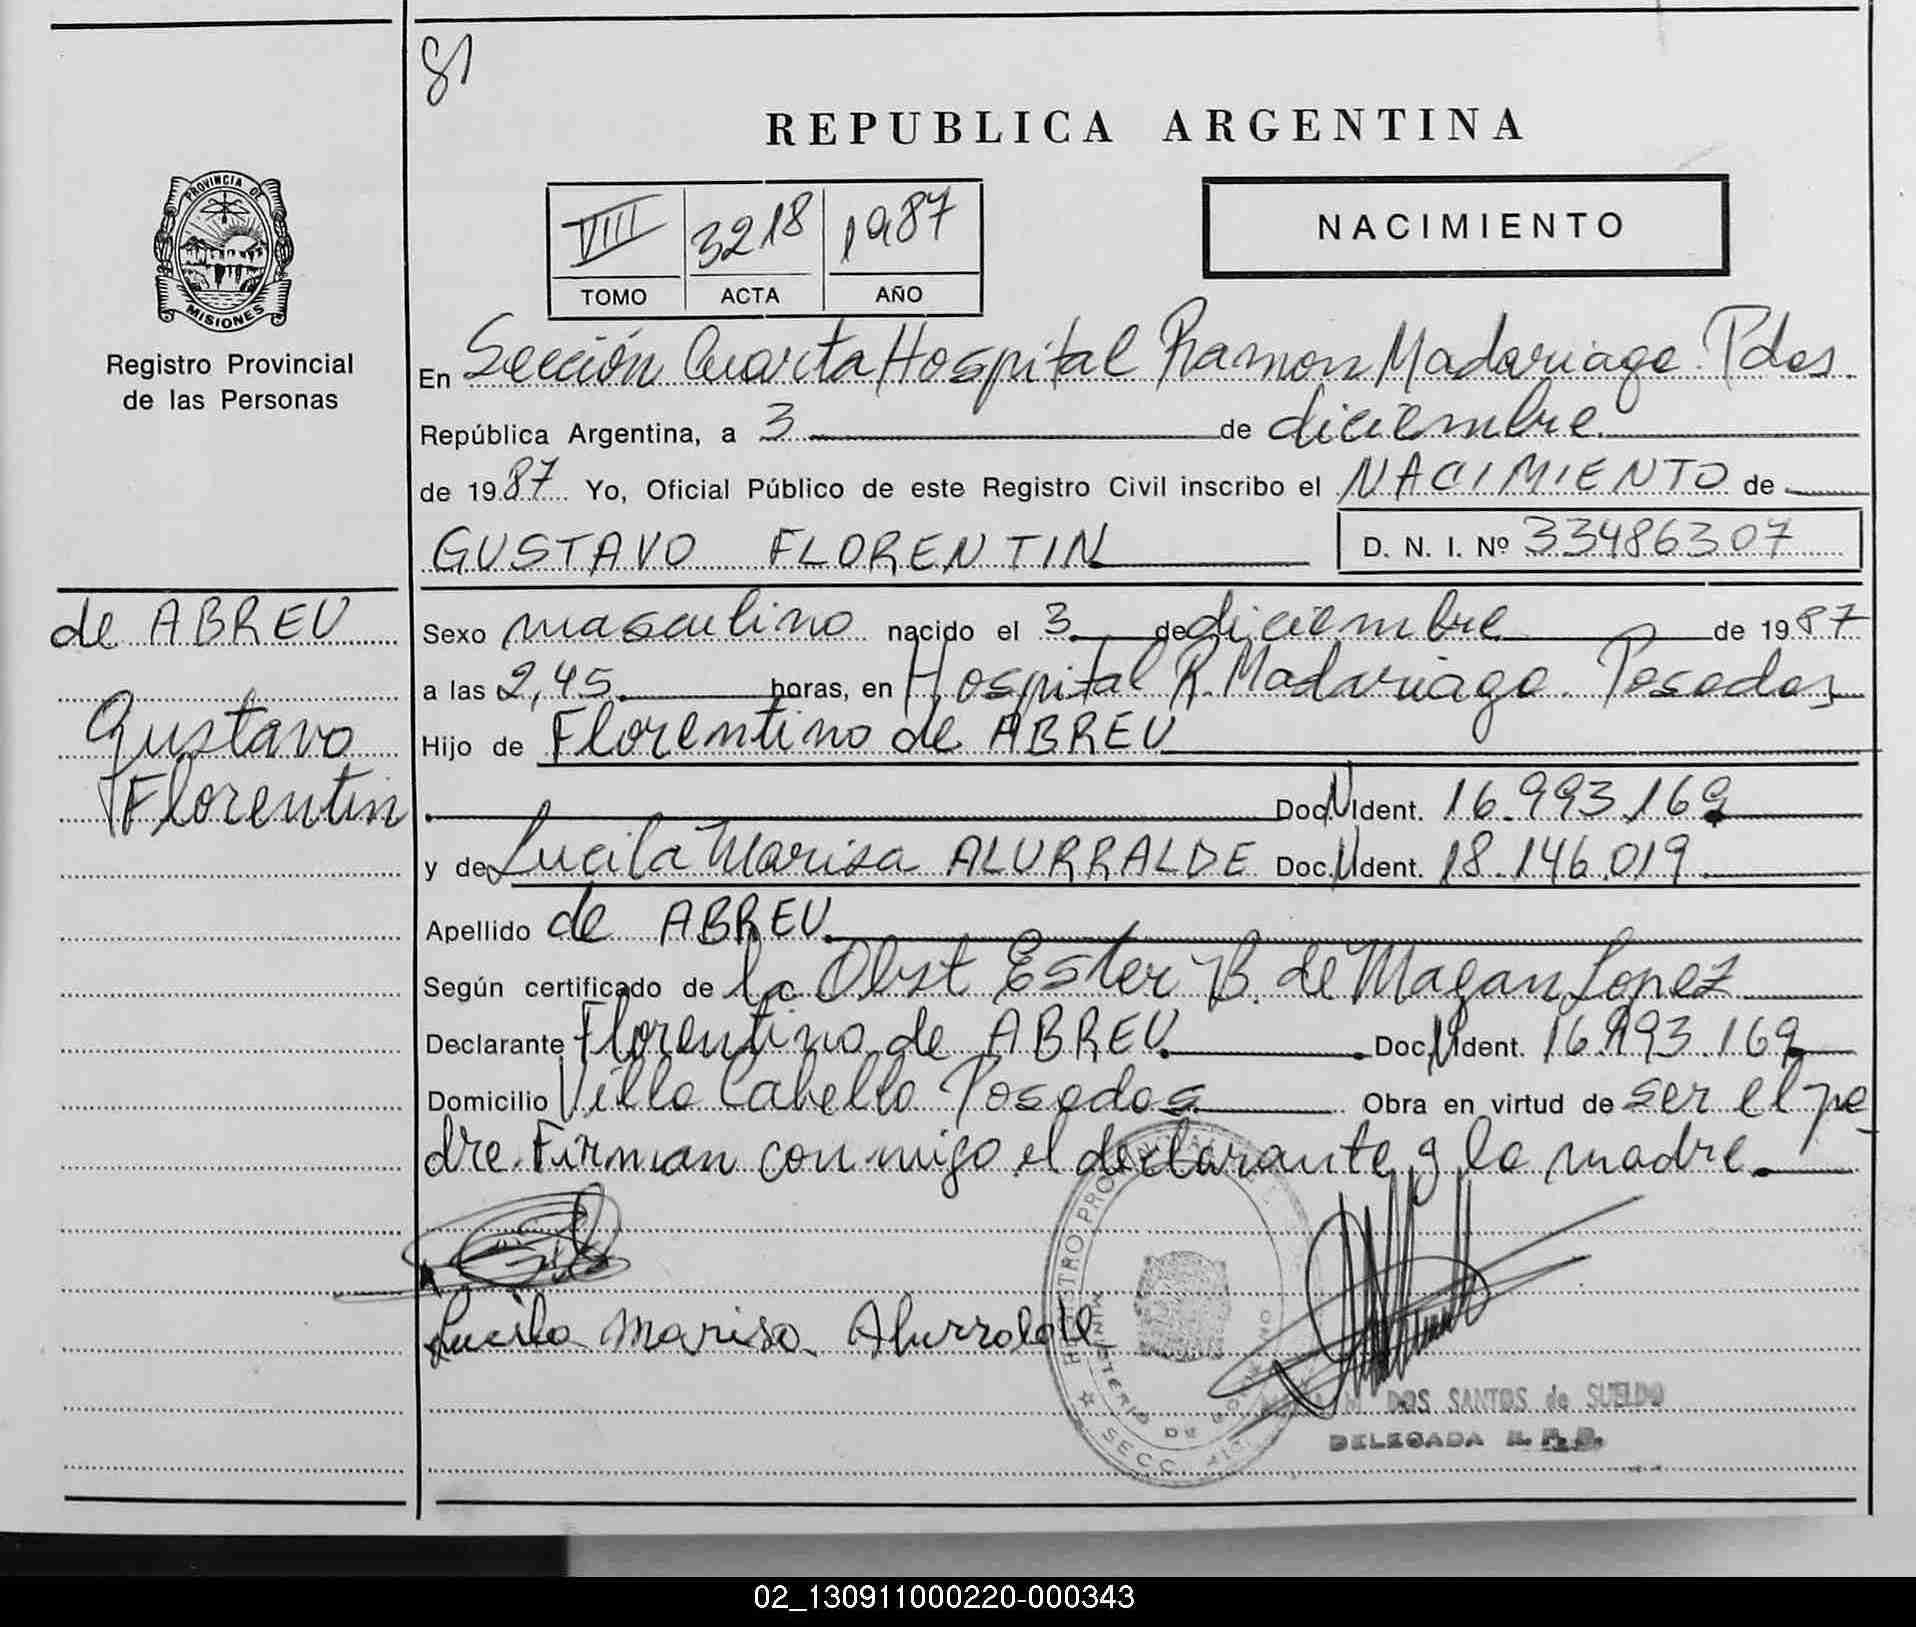 81
REPUBLICA ARGENTINA
PROVINCIA DE
MISIONES
Registro Provincial
de las Personas
VIII 3218 1987
TOMO ACTA AÑO
NACIMIENTO
En Sección Cuarta Hospital Ramon Madariaga. Pdas.
República Argentina, a 3 de diciembre
de 1987 Yo, Oficial Público de este Registro Civil inscribo el NACIMIENTO de
GUSTAVO FLORENTIN
D. N. I. Nº 33486307
de ABREU
Gustavo
Florentin
Sexo masculino nacido el 3 de diciembre de 1987
a las 2,45 horas, en Hospital R. Madariaga. Posadas
Hijo de Florentino de ABREU
Doc.N.Ident. 16.993.169
y de Lucila Marisa ALURRALDE Doc.N.Ident. 18.146.019
Apellido de ABREU
Según certificado de la Obst Ester B. de Magan Lopez
Declarante Florentino de ABREU Doc.N.Ident. 16.993.169
Domicilio Villa Cabello Posadas Obra en virtud de ser el pa
dre. Firman conmigo el declarante y la madre.
Lucila Marisa Alurralde
REGISTRO PROVINCIAL
MINISTERIO DE GOBIERNO
SECC.
DOS SANTOS de SUELDO
DELEGADA R. P. P.
02_130911000220-000343